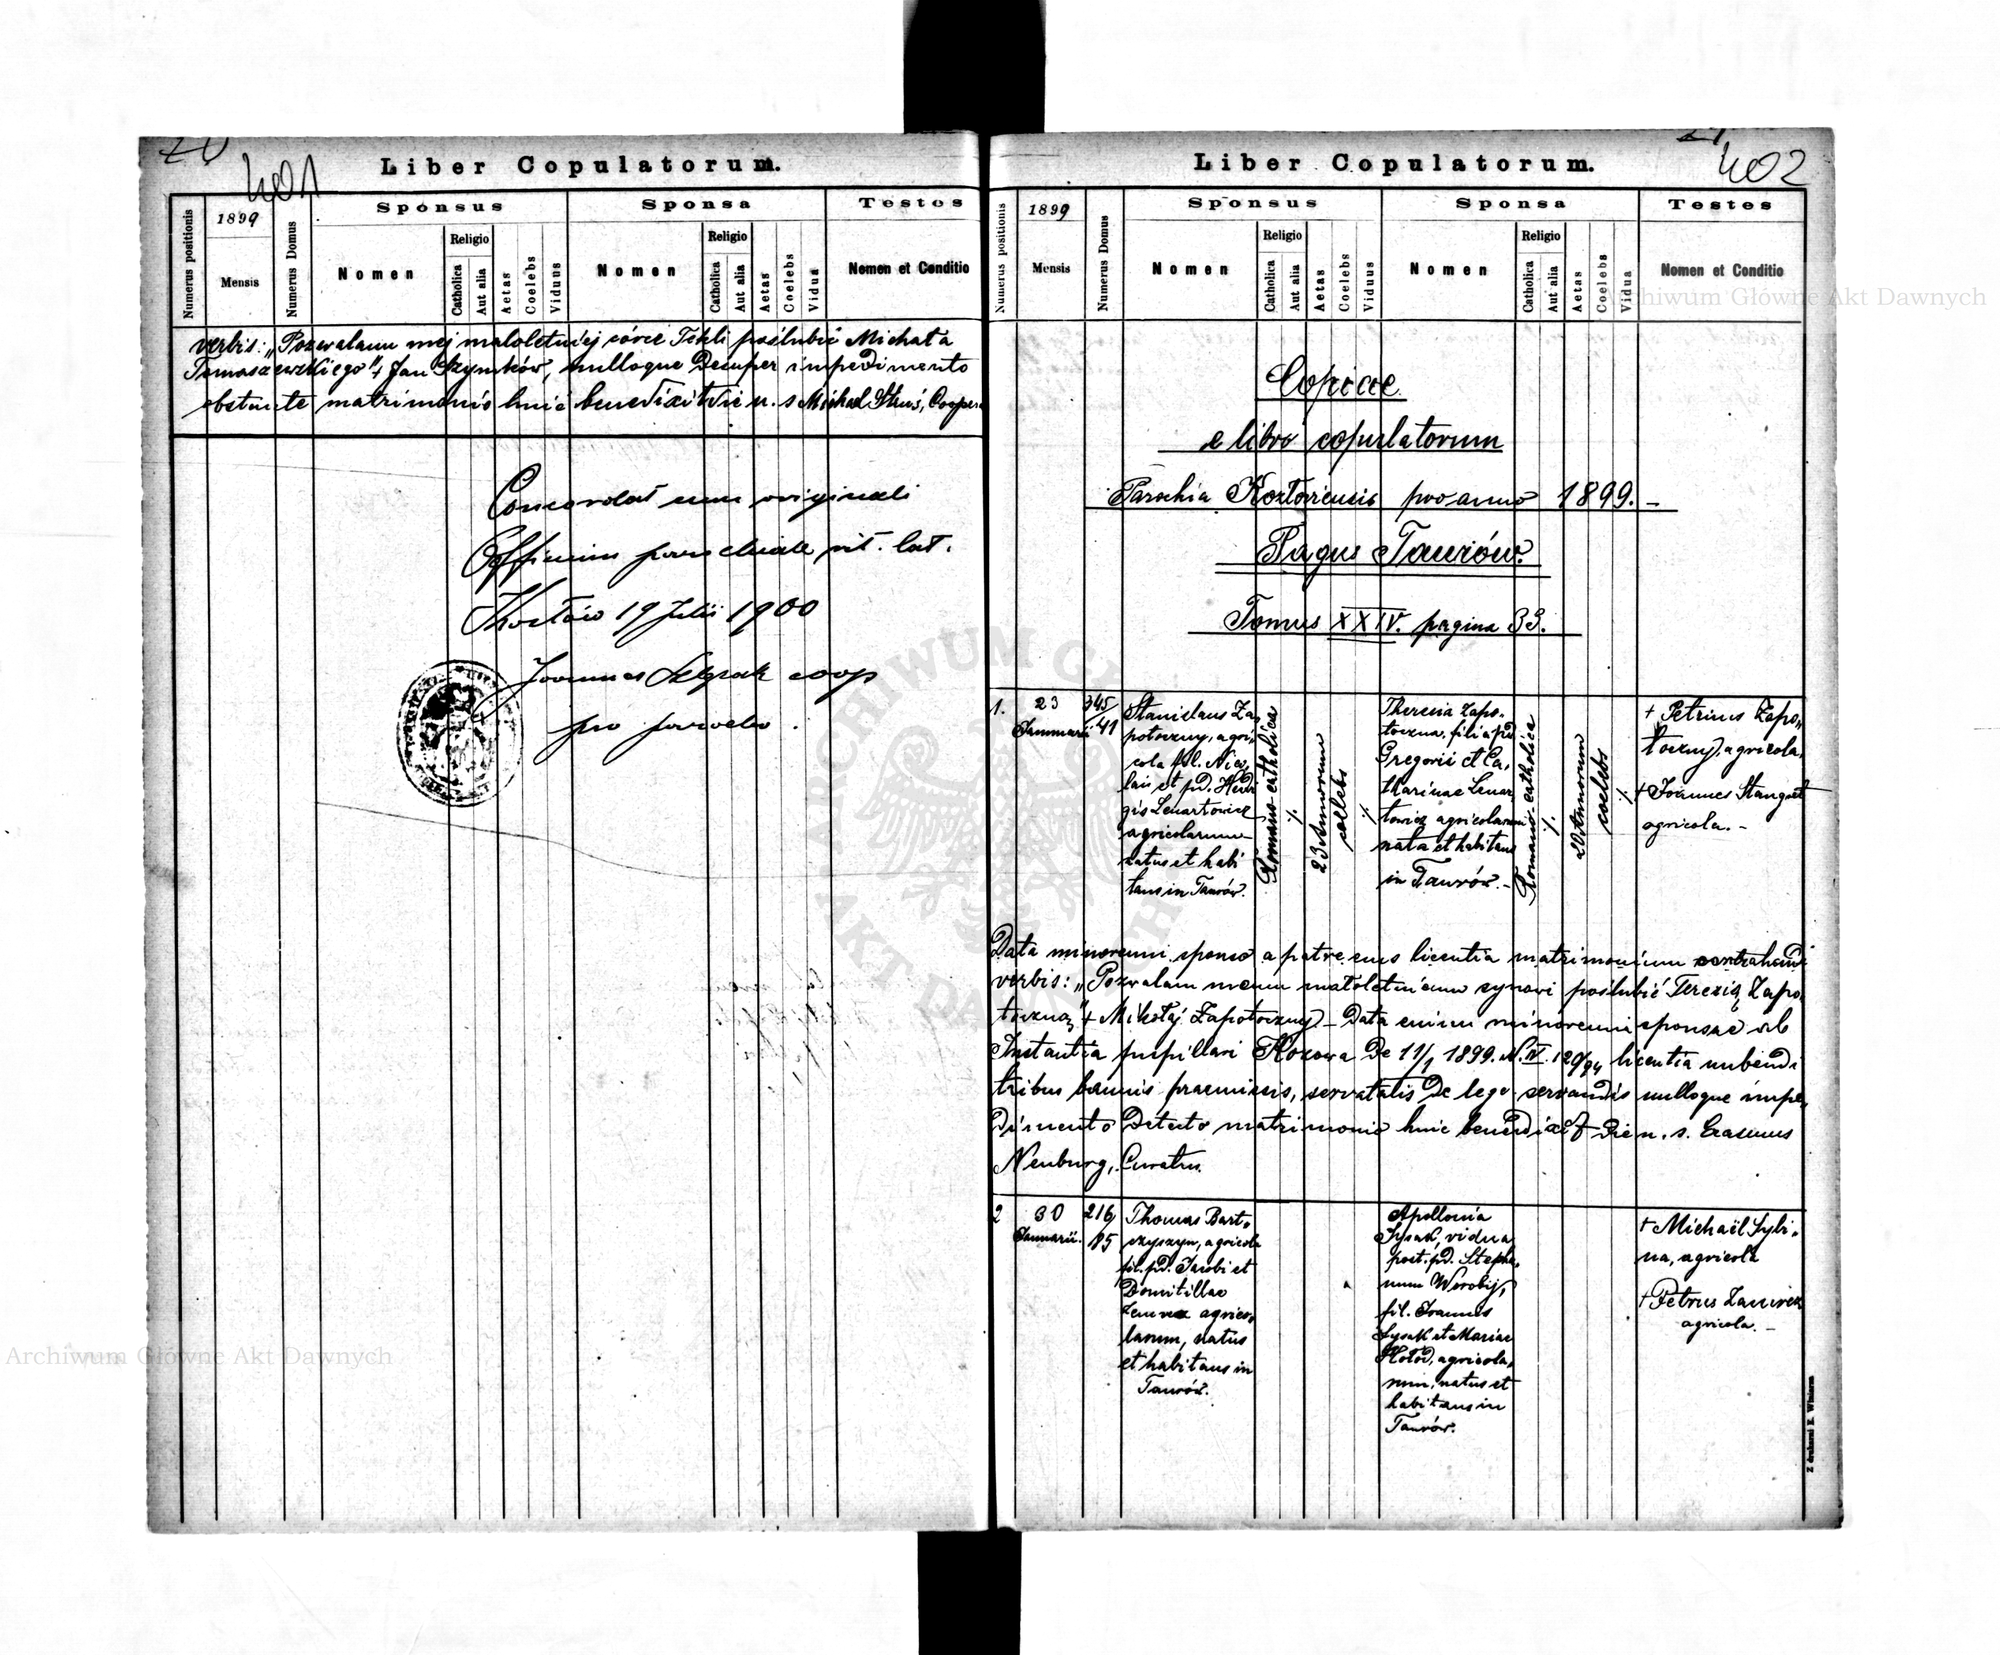 401
Liber Copulatorum.
Numerus positionis
1899
Mensis
Numerus Domus
Sponsus
Nomen
Religio
Catholica
Aut alia
Aetas
Coelebs
Vidus
Sponsa
Nomen
Religio
Catholica
Aut alia
Aetas
Coelebs
Vidua
Testes
Nomen et Conditio
verbis: „Pozwalam mej małoletniej córce Tekli poślubić Michała
Tomaszewskiego" + Jan Szymków, nulloque desuper impedimento
obstante matrimonio huic benedixit die u. s Michael Struś, Cooper.
Concordat cum originali
Officium parochiale rit. lat.
19 Julii 1900
Joannes coop
pro parocho.
402
Liber Copulatorum.
Numerus positionis
1899
Mensis
Numerus Domus
Sponsus
Nomen
Religio
Catholica
Aut alia
Aetas
Coelebs
Vidus
Sponsa
Nomen
Religio
Catholica
Aut alia
Aetas
Coelebs
Vidua
Testes
Nomen et Conditio
Copiae
e libro copulatorum
Parochia pro anno 1899. –
Pagus Taurów.
Tomus XXIV. pagina 33.
1.
23
Januarii
345/
41
Stanislaus Za„
potoczny, agri„
cola fil. Nico„
lai et pd. Hedvi
gis Lenartowicz
agricolarum
natus et habi
tans in Taurów.
Romano-catholica
./.
23 Annorum
coelebs
./.
Theresia Zapo„
toczna, fili a pd
Gregorii et Ca„
tharinae Lenar
towicz agricolarum
nata et habitans
in Taurów. –
Romano-catholica
./.
20 Annorum
coelebs
./.
+ Petrus Zapo„
toczny, agricola.
+ Joannes Stangret
agricola. –
Data minorenni sponso a patre eius licentia matrimonium contrahendi
verbis: „Pozwalam memu małoletniemu synowi poślubić Terezią Zapo„
toczną" + Mikołaj Zapotoczny – Data enim minorenni sponsae ab
Instantia pupillari Kozowa de 11/1 1899. N. IV. 129/94 licentia nubendi
tribus bannis praemissis, servatis de lege servandis nulloque impe„
dimento detecto matrimonio huic benedixit die u. s. Erasmus
Neuburg, Curatus.
2
30
Januarii.
216/
85
Thomas Bart„
czyszyn, agricola
fil. pd. Jacobi et
Domitillae
agrico„
larum, natus
et habitans in
Taurów.
Apollonia
Sysak, vidua
post. pd. Stepha„
num Worobij,
fil. Joannis
Sysak et Mariae
Hołod, agricola„
rum, natus et
habitans in
Taurów.
+ Michaël Syli„
na, agricola
+ Petrus
agricola. –
Z drukarni E. Winiarza
Archiwum Główne Akt Dawnych
Archiwum Główne Akt Dawnych
ARCHIWUM GŁÓWNE AKT DAWNYCH